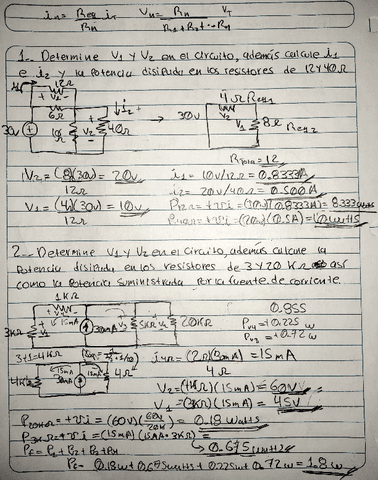 in = Req iT / Rn    Vn = Rn / R1+R2+...Rn VT
1.- Determine V1 y V2 en el circuito, además calcule i1
e i2 y la potencia disipada en los resistores de 12 y 40Ω
12Ω
V1
6Ω
V2
40Ω
30v
i2
→
30v
4Ω Req1
V1
8Ω
Req2
R = 12
V2 = (8)(30v) = 20v
12Ω
i1 = 10v/12Ω = 0.8333A
i2 = 20v/40Ω = 0.500A
V1 = (4)(30v) = 10v
12Ω
P12Ω = +vi = (10v)(0.8333A) = 8.333 watts
P40Ω = +vi = (20v)(0.5A) = 10 watts
2.- Determine V1 y V2 en el circuito, además calcule la
potencia disipada en los resistores de 3 y 20 KΩ así
como la potencia suministrada por la fuente de corriente.
1KΩ
3KΩ
V1
15mA
30mA
V2
5KΩ
20KΩ
0.855
P = +0.225 w
P = +0.72 w
3+1=4KΩ
4KΩ
15mA
30mA
15mA
4Ω
= 15mA
4Ω
V2 = (4KΩ)(15mA) = 60V
V1 = (3KΩ)(15mA) = 45V
P20KΩ = +vi = (60v)(60v/20K) = 0.18 watts
P3KΩ = +vi = (15mA)(15mA·3KΩ) =
→ 0.675 watts
Pf = P1 + P2 + P3 + P4
Pf = 0.18w + 0.675watts + 0.225w + 0.72w = 1.8w